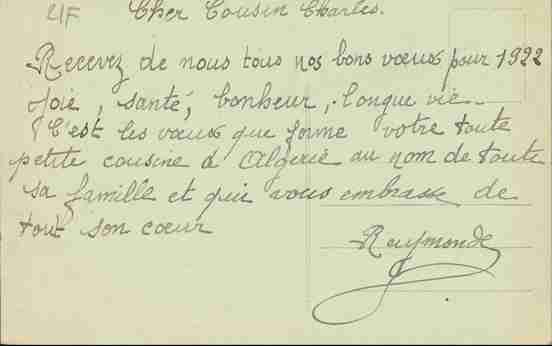 Cher Cousin Charles.
Recevez de nous tous nos bons vœux pour 1922
Joie, santé, bonheur, longue vie.
C'est les vœux que forme votre toute
petite cousine d'Algérie au nom de toute
sa famille et qui vous embrasse de
tout son cœur
Raymonde